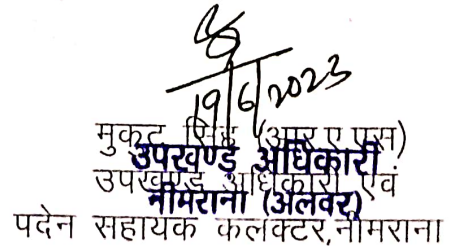 19/6/2023
मुकुट सिंह (आर ए एस)
उपखण्ड अधिकारी
उपखण्ड अधिकारी एवं
नीमराना (अलवर)
पदेन सहायक कलक्टर,नीमराना